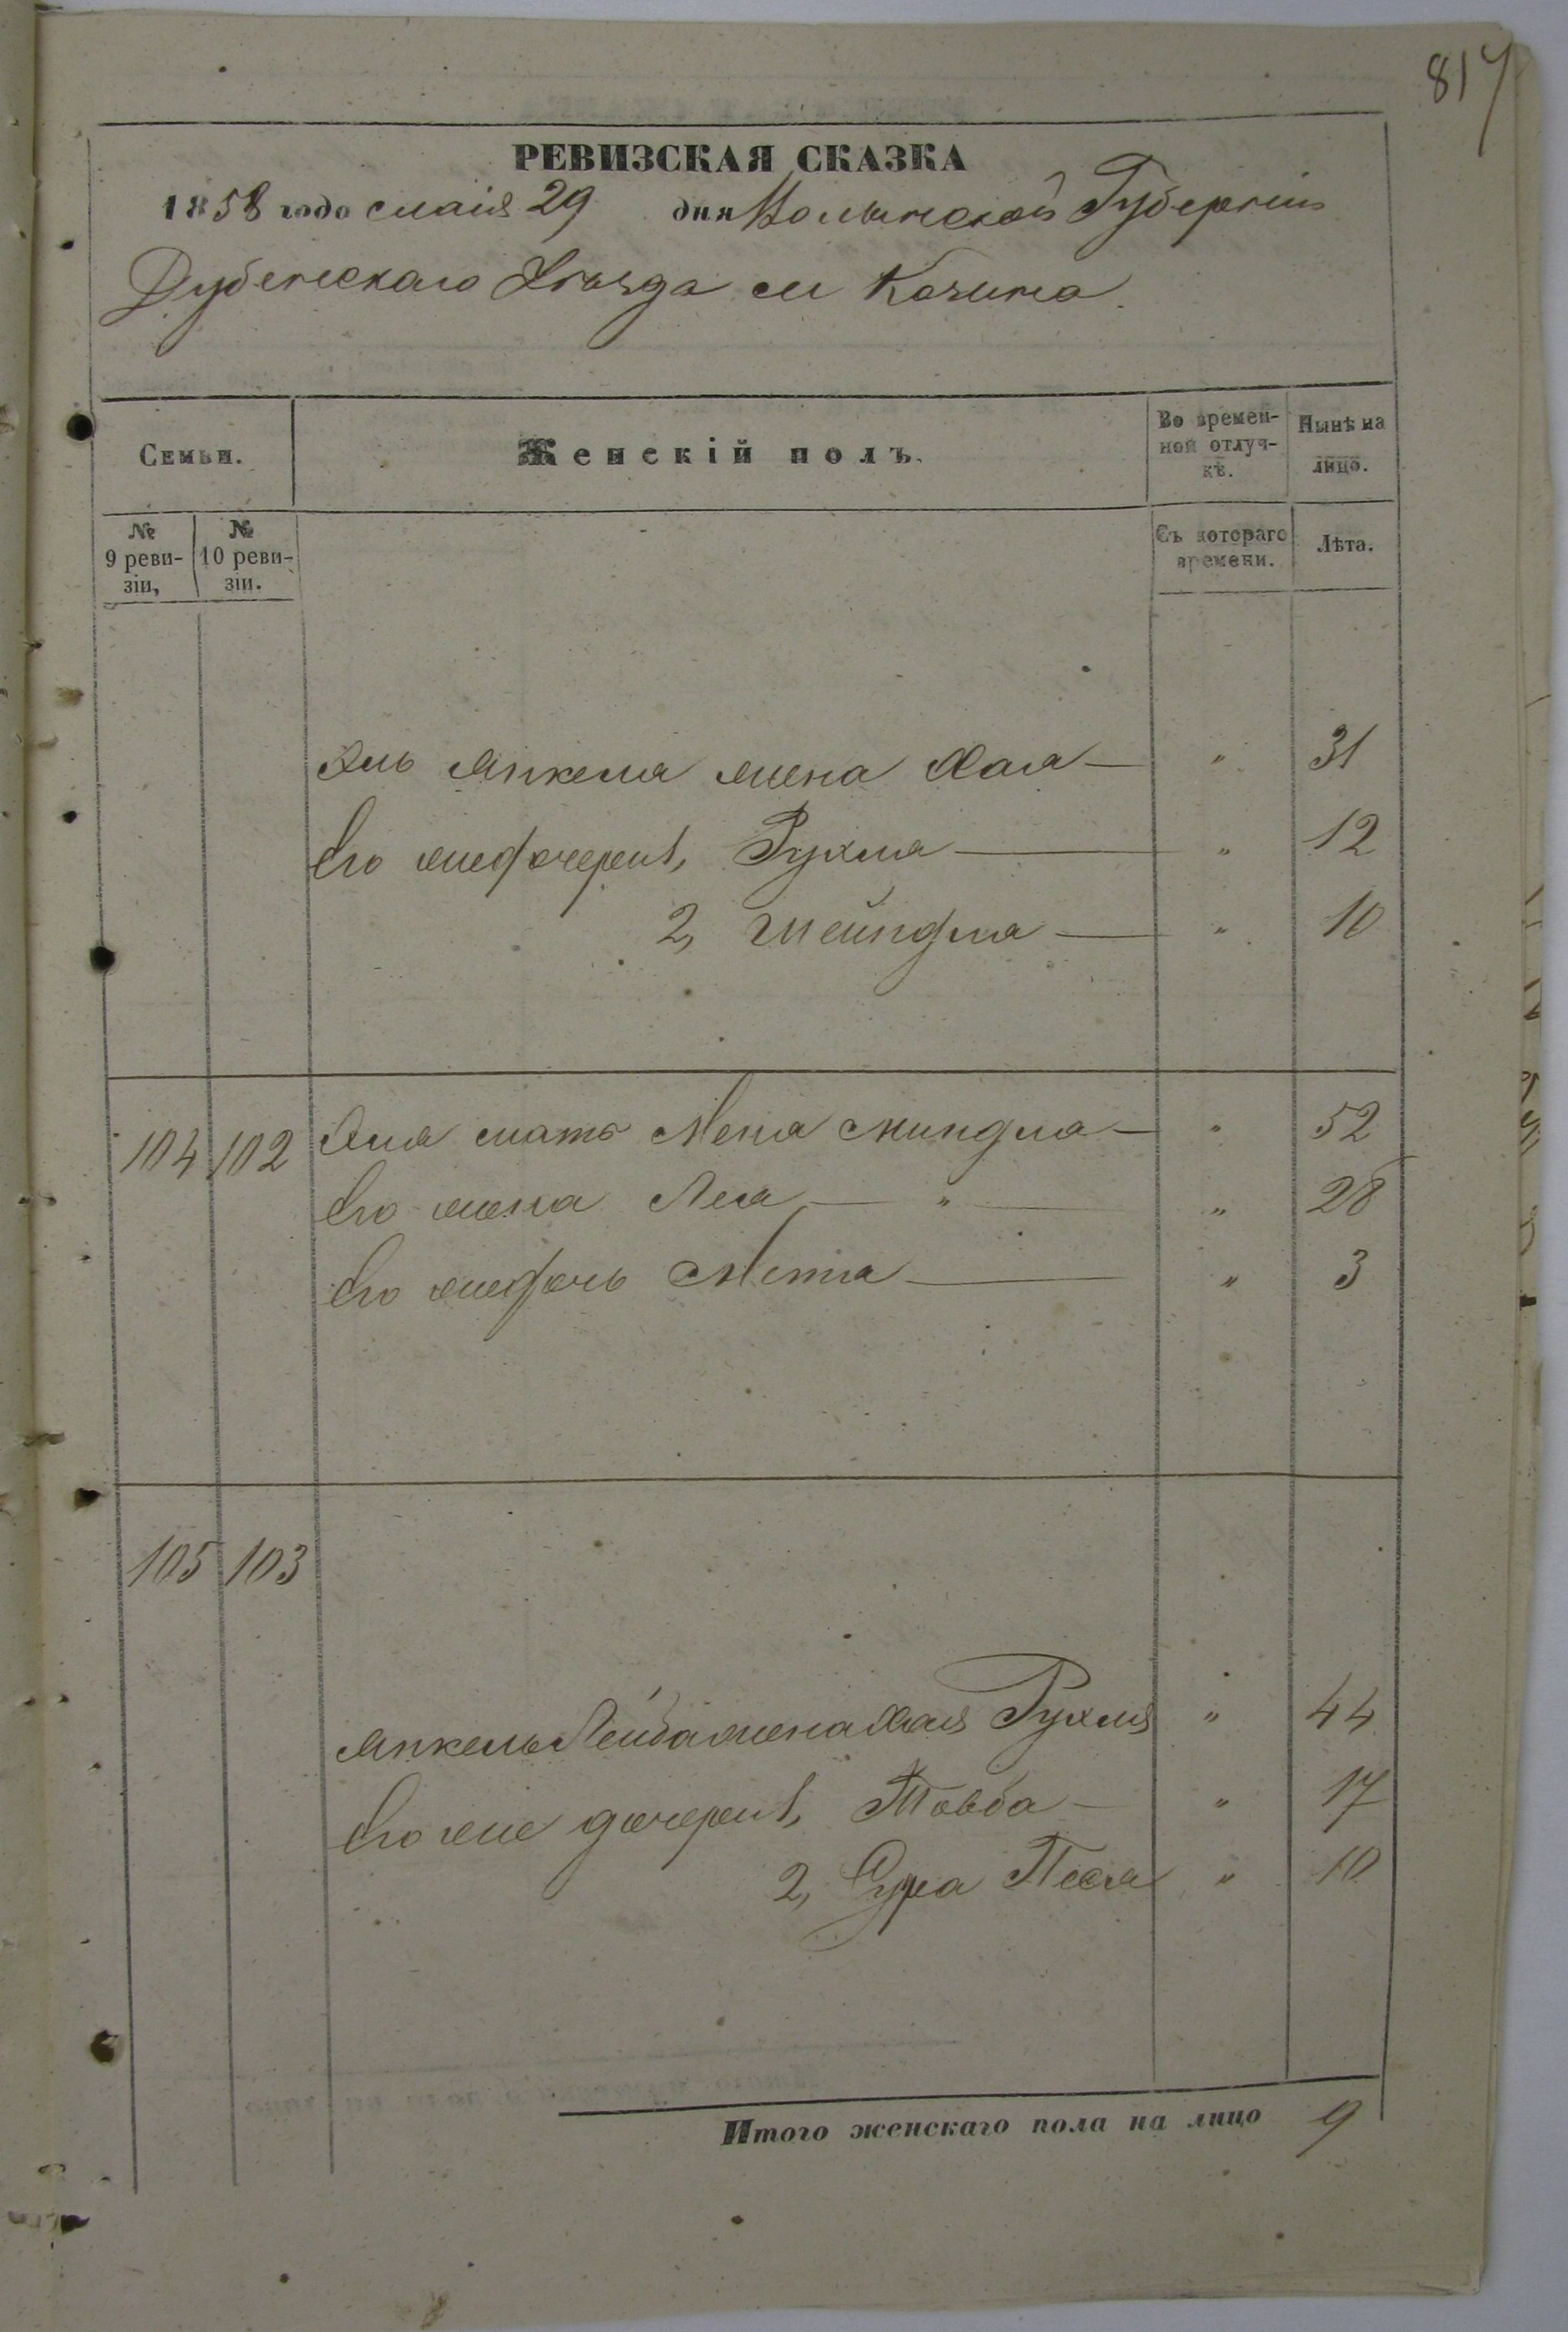 817
РЕВИЗСКАЯ СКАЗКА
1858 года маія 29 дня Волынской Губерніи
Дубенскаго Уѣзда м Козина
Семьи.
Женскій полъ.
Во времен-
ной отлуч-
кѣ.
Нынѣ на
лицо.
№
9 реви-
зіи,
№
10 реви-
зіи.
Съ котораго
времени.
Лѣта.
Янкеля жена Хая — " 31
Его же дочери 1, Рухля — " 12
2, Шейндля — " 10
104 102 мать Меня Миндля — " 52
Его жена Лея — " — " 28
Его же дочь — " 3
105 103
Янкель Лейба жена Хая Рухля " 44
Его же дочери 1, Товба — " 17
2, Сура Песя " 10
Итого женскаго пола на лицо 9